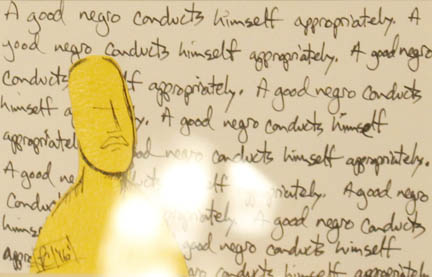 A good negro conducts himself appropriately. A
good negro conducts himself appropriately. A good negro
conducts f appropriately. A good negro conducts
himself a y. A good negro conducts himself
appropriately od negro conducts himself appropriately.
A good ne ducts himself appropriately. A good negro
Conduc priately. A good negro conducts
himse good negro conducts himself
appro good negro conducts himself
conducts himself appropriately